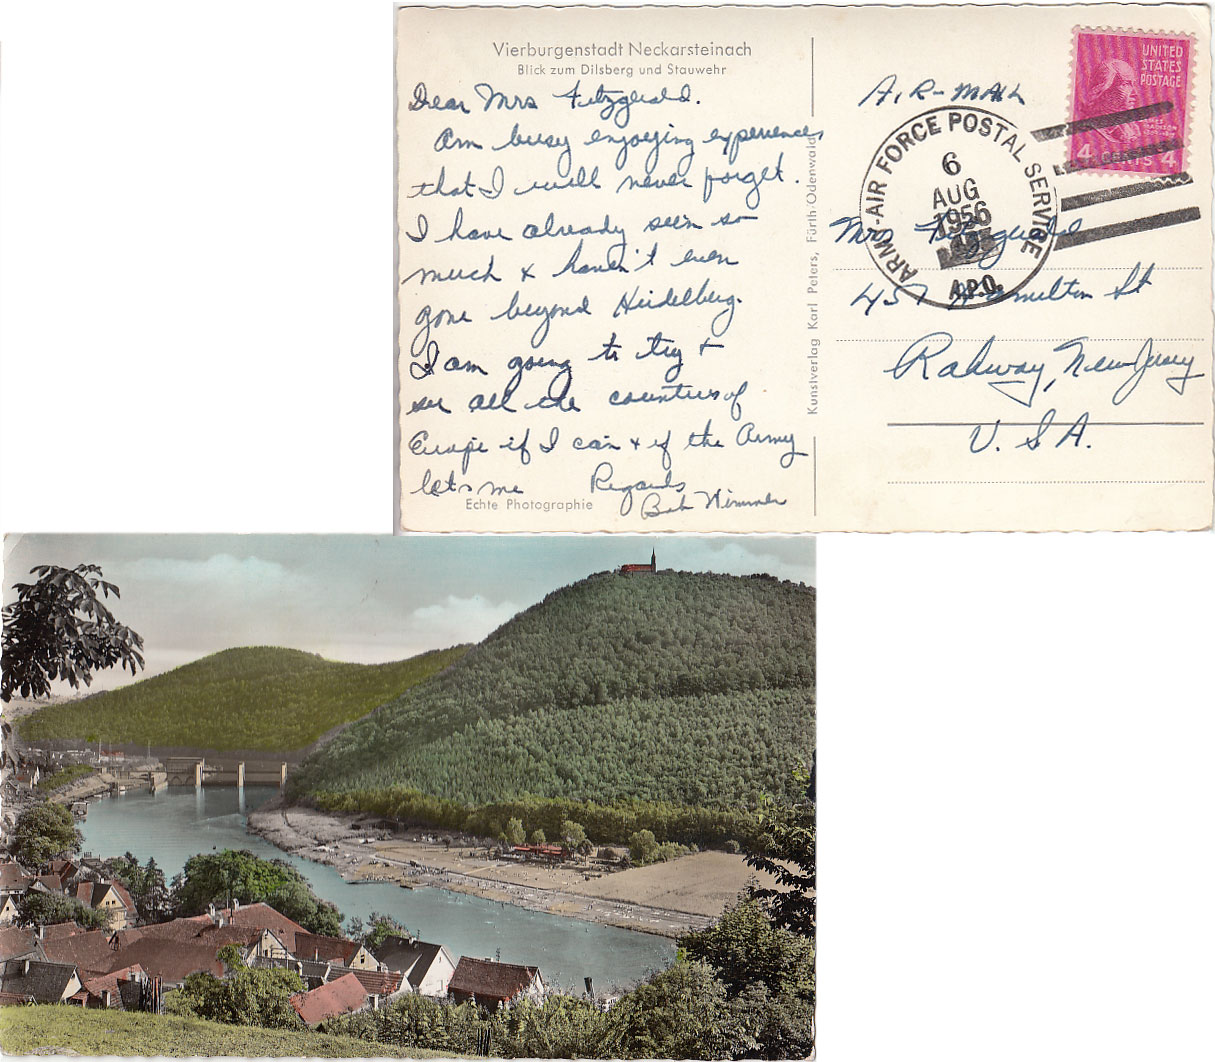 Vierburgenstadt Neckarsteinach
Blick zum Dilsberg und Stauwehr
Dear Mrs Fitzgerald.
Am busy enjoying experiences
that I will never forget.
I have already seen so
much & haven't even
gone beyond Heidelberg.
I am going to try &
see all the countries of
Europe if I can & if the Army
lets me Regards
Echte Photographie
Bob
Kunstverlag Karl Peters, Fürth-Odenwald
AIR-MAIL
UNITED
STATES
POSTAGE
4 CENTS 4
ARMY-AIR FORCE POSTAL SERVICE
6
AUG
1956
A.P.O.
Mrs Fitzgerald
457 Hamilton St
Rahway, New Jersey
U.S.A.